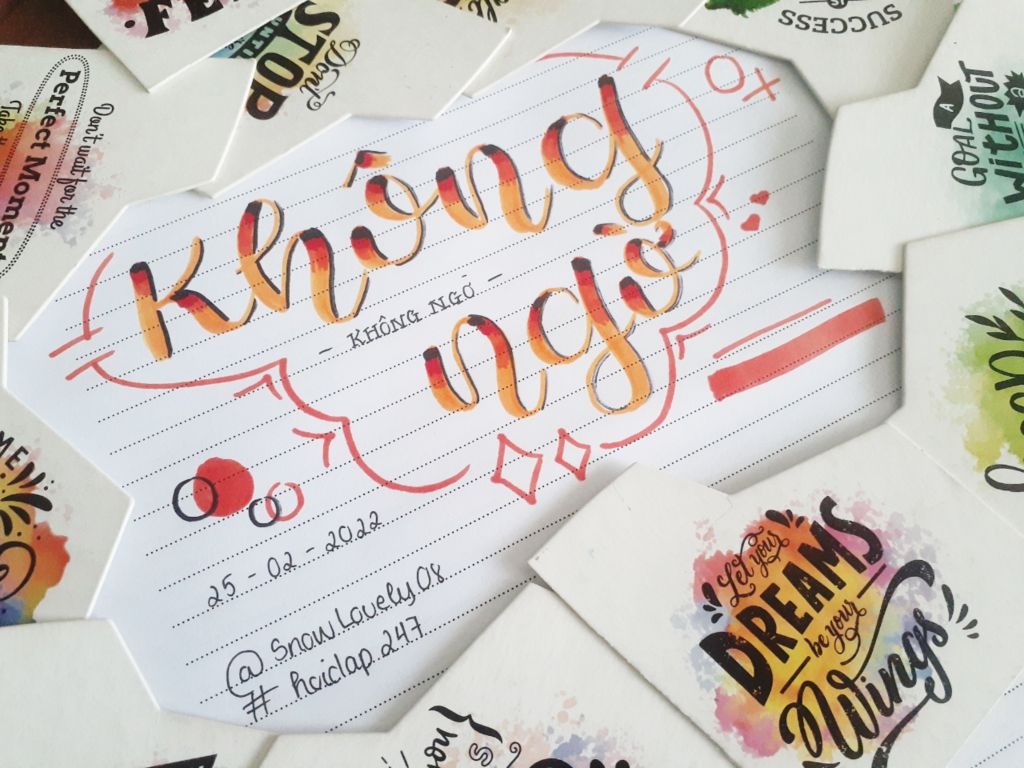 Không
ngờ
- KHÔNG NGỜ -
25 - 02 - 2022
@SnowLovely08
# haidap.247
Don't
STOP
UNTIL
Don't wait for the
Perfect Moment
SUCCESS
A
GOAL
WITHOUT
Let your
DREAMS
be your
Wings